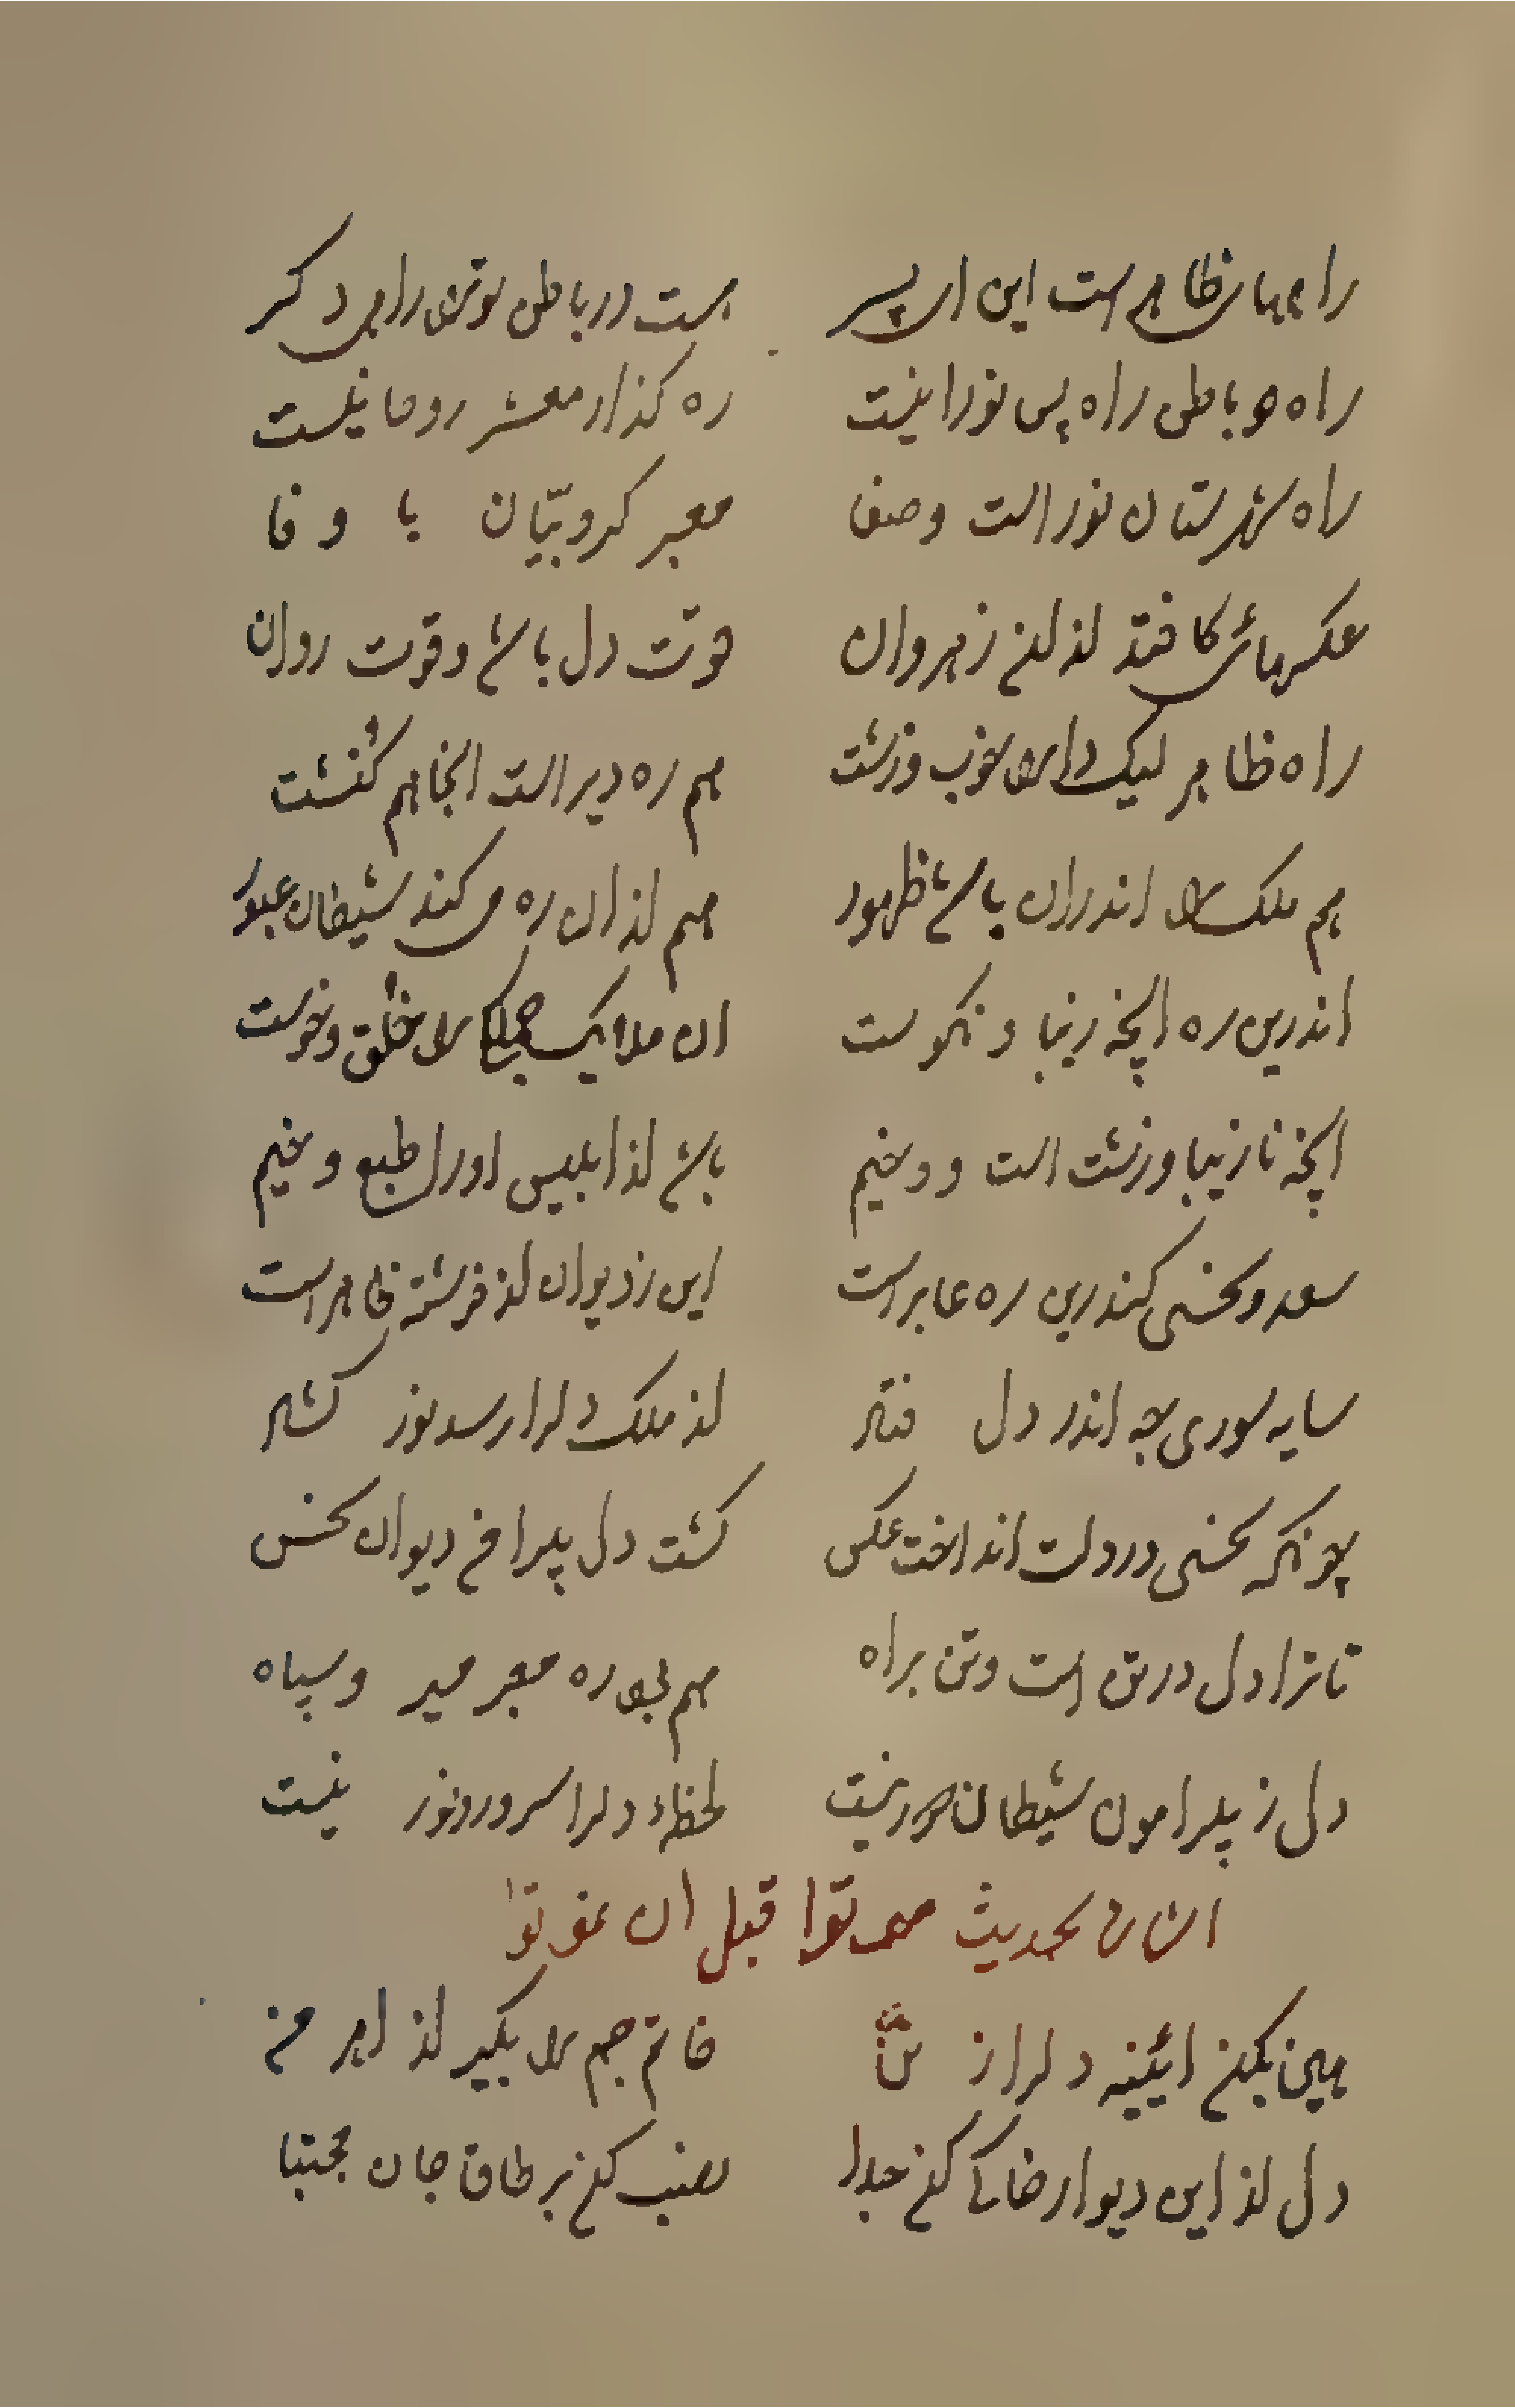 راههای ظاهر است این ای پسر هست در باطن بوتن راهی دکر
راه باطن راه پس نورانیست ره کذار معشر روحانیست
راه شهرستان نور است وصفا معبر کروبیّان با وفا
عکسهائی کافتد از زهروان قوّت دل باشد وقوت روان
راه ظاهر لیک دارد خوب وزشت هم ره دیر است انجا هم کنشت
هم ملک را اندران باشد ظهور هم از ان ره می کند شیطان عبور
اندرین ره انچه زیبا و نکوست ان ملایک را خلق وخوست
انچه نازیبا وزشت است و وخیم باشد از ابلیس اورا طبع وخیم
سعد ونحسی کندرین ره عابر است این ز دیوان از فرشته ظاهر است
سایه سوری چه اندر دل فتد از ملک دلرا رسد نور کشد
چونکه نحسی در دلت انداخت عکس کشت دل پیرامن دیوان نحس
تا ترا دل در تن است وتن براه هم بود ره معبر میر وسپاه
دل ز پیرامون شیطان دور نیست لحظهٔ دلرا سرور ونور نیست
اشارت بحدیث موتوا قبل ان تموتوا
هین بکن ائینه دلرا ز تن خاتم جم را بکیر از اهرمن
دل از این دیوار خاکی کن جدا نصب کن بر طاق جان مجتبا